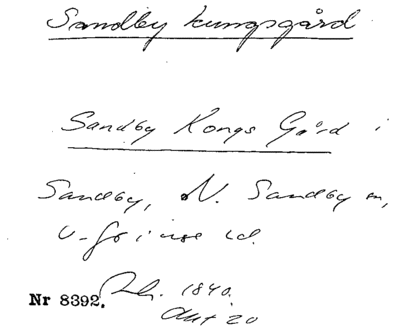 Sandby kungsgård
Sandby Kongs Gård i
Sandby, N. Sandby sn,
Nr 8392. 1840.
Akt 20